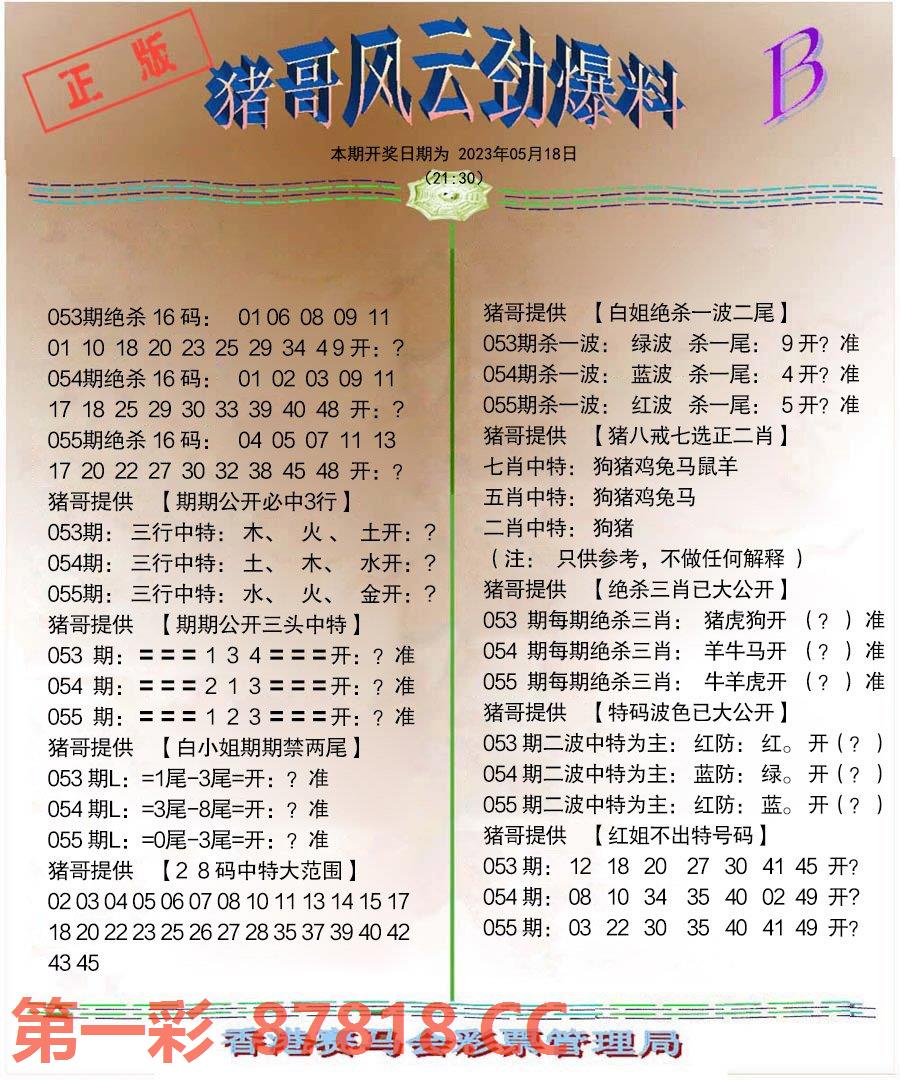 正版
猪哥风云劲爆料
B
本期开奖日期为 2023年05月18日
(21:30)
053期绝杀 16 码： 01 06 08 09 11
01 10 18 20 23 25 29 34 49 开：?
054期绝杀 16 码： 01 02 03 09 11
17 18 25 29 30 33 39 40 48 开：?
055期绝杀 16 码： 04 05 07 11 13
17 20 22 27 30 32 38 45 48 开：?
猪哥提供 【期期公开必中3行】
053期： 三行中特：木、 火、 土开：?
054期： 三行中特：土、 木、 水开：?
055期： 三行中特：水、 火、 金开：?
猪哥提供 【期期公开三头中特】
053 期：＝＝＝１３４＝＝＝开：? 准
054 期：＝＝＝２１３＝＝＝开：? 准
055 期：＝＝＝１２３＝＝＝开：? 准
猪哥提供 【白小姐期期禁两尾】
053 期L：=1尾-3尾=开：? 准
054 期L：=3尾-8尾=开：? 准
055 期L：=0尾-3尾=开：? 准
猪哥提供 【２８码中特大范围】
02 03 04 05 06 07 08 10 11 13 14 15 17
18 20 22 23 25 26 27 28 35 37 39 40 42
43 45
猪哥提供 【白姐绝杀一波二尾】
053期杀一波： 绿波 杀一尾： 9 开? 准
054期杀一波： 蓝波 杀一尾： 4 开? 准
055期杀一波： 红波 杀一尾： 5 开? 准
猪哥提供 【猪八戒七选正二肖】
七肖中特： 狗猪鸡兔马鼠羊
五肖中特： 狗猪鸡兔马
二肖中特： 狗猪
（注： 只供参考，不做任何解释 ）
猪哥提供 【绝杀三肖已大公开】
053 期每期绝杀三肖： 猪虎狗开 （？ ）准
054 期每期绝杀三肖： 羊牛马开 （？ ）准
055 期每期绝杀三肖： 牛羊虎开 （？ ）准
猪哥提供 【特码波色已大公开】
053 期二波中特为主： 红防： 红。 开（？ ）
054 期二波中特为主： 蓝防： 绿。 开（？ ）
055 期二波中特为主： 红防： 蓝。 开（？ ）
猪哥提供 【红姐不出特号码】
053 期： 12 18 20 27 30 41 45 开?
054 期： 08 10 34 35 40 02 49 开?
055 期： 03 22 30 35 40 41 49 开?
第一彩 87818.CC
香港赛马会彩票管理局